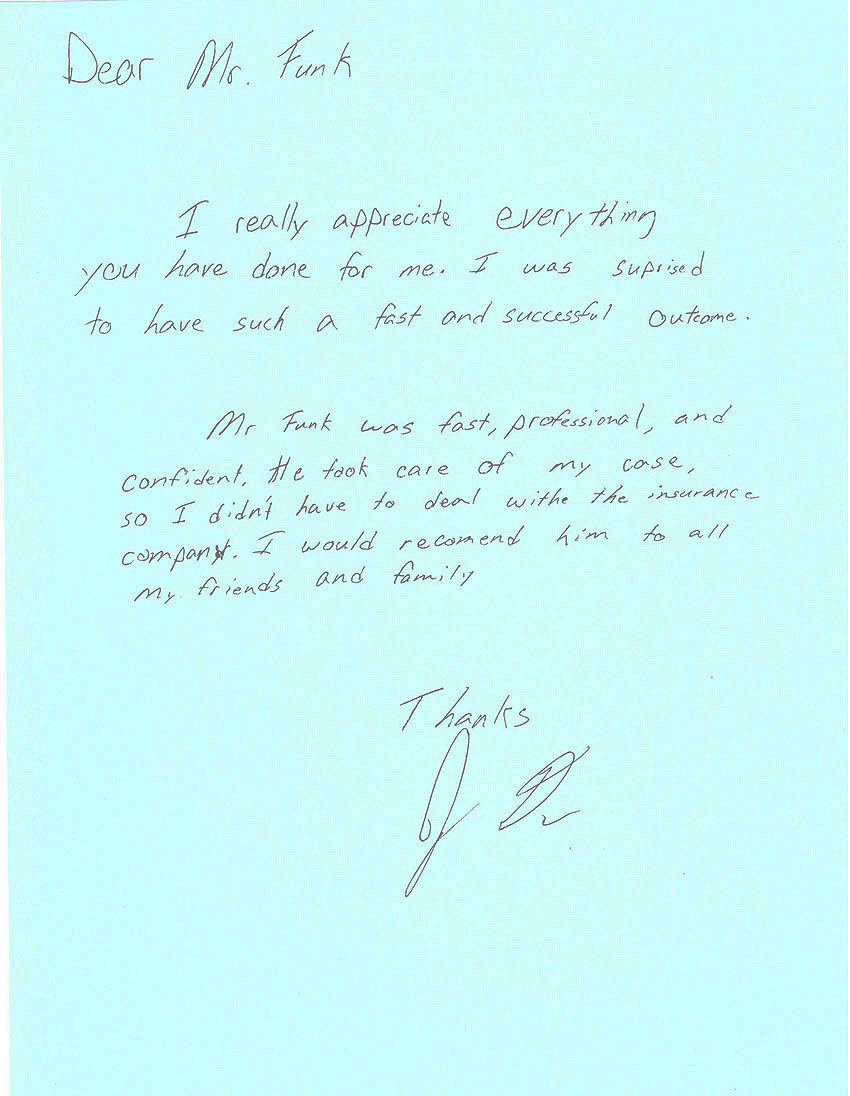 Dear Mr. Funk
I really appreciate everything
you have done for me. I was suprised
to have such a fast and successful outcome.
Mr Funk was fast, professional, and
confident. He took care of my case,
so I didn't have to deal withe the insurance
company. I would recomend him to all
my friends and family
Thanks